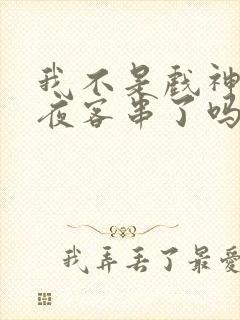 我不是戏神
夜客串了吗
我弄丢了最爱